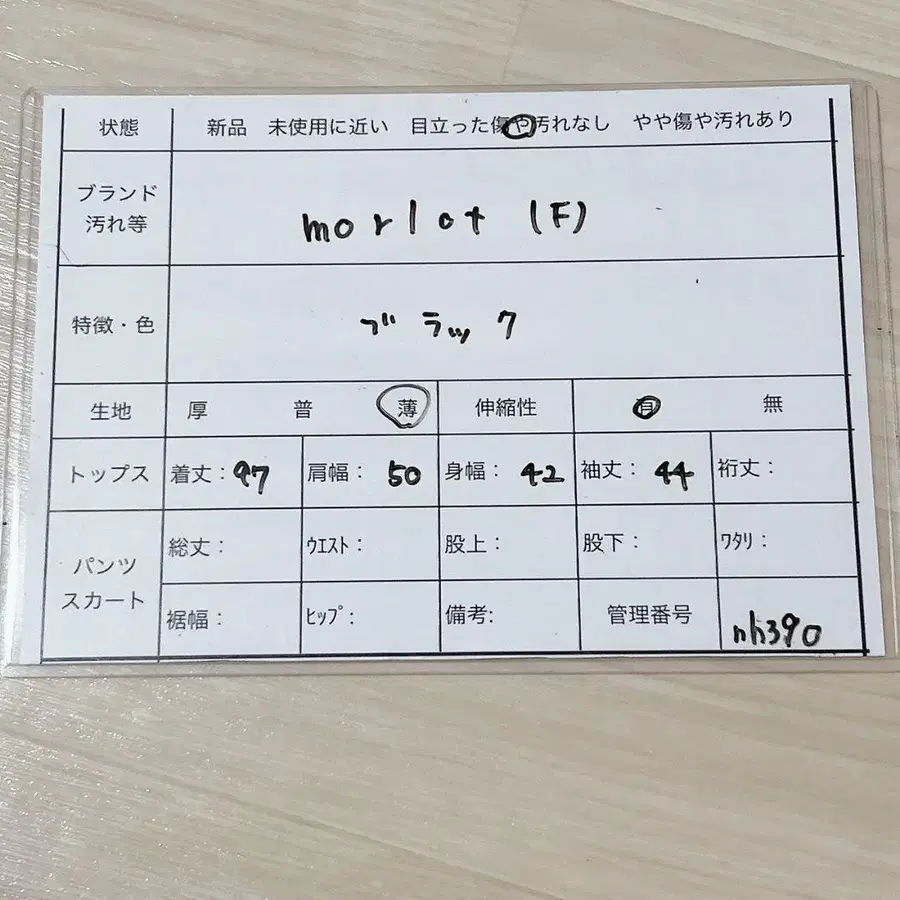 状態 新品 未使用に近い 目立った傷や汚れなし やや傷や汚れあり
ブランド
汚れ等
morlot (F)
特徴・色 ブラック
生地 厚 普 薄 伸縮性 有 無
トップス 着丈:97 肩幅:50 身幅:42 袖丈:44 裄丈:
パンツ
スカート
総丈: ウエスト: 股上: 股下: ワタリ:
裾幅: ヒップ: 備考: 管理番号 nh390